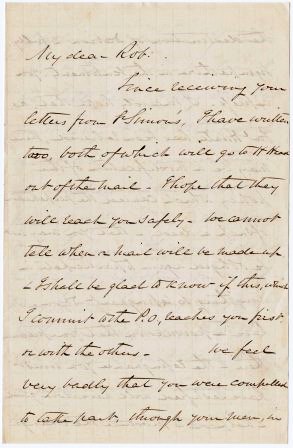 My dear Rob:
Since receiving your
letters from St Simon's, I have written
two, both of which will go to H Head
out of the mail - I hope that they
will reach you safely - We cannot
tell when a mail will be made up
- I shall be glad to know if this, which
I commit to the P.O, reaches you first
or with the others - We feel
very badly that you were compelled
to take part, through your men, in